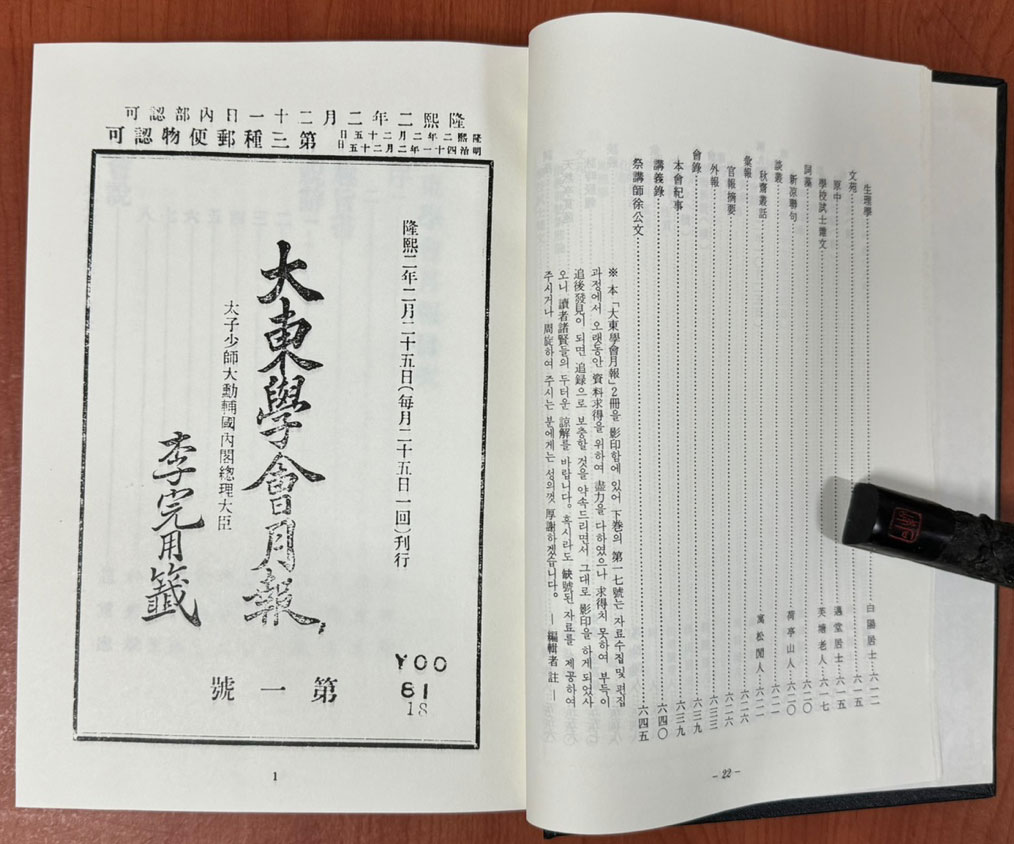 生理學 白陽居士 六一二
文苑 六一五
原中 居士 六一五
學校試士雜文 芙塘老人 六一七
詞藻 六二〇
新凉聯句 荷亭山人 六二〇
談叢 六二一
秋齋叢話 寓松閒人 六二一
彙報 六二六
官報摘要 六二六
外報 六三三
會錄 六三九
本會紀事 六三九
講義錄 六四〇
祭講師徐公文 六四五
※ 本「大東學會月報」2冊을 影印함에 있어 下巻의 第一七號는 자료수집 및 편집
과정에서 오랫동안 資料求得을 위하여 盡力을 다하였으나 求得치 못하여 부득이
追後發見이 되면 追錄으로 보충할 것을 약속드리면서 그대로 影印을 하게 되었사
오니 讀者諸賢들의 두터운 諒解를 바랍니다. 혹시라도 缺號된 자료를 제공하여
주시거나 周旋하여 주시는 분에게는 성의껏 厚謝하겠습니다. ─ 編輯者 註 ─
- 22 -
隆熙二年二月二十一日內部認可
隆熙二年二月二十五日
明治四十一年二月二十五日
第三種郵便物認可
隆熙二年二月二十五日(每月二十五日一回)刊行
大東學會月報
太子少師大勳輔國內閣總理大臣
李完用籤
第一號
YOO
61
18
1